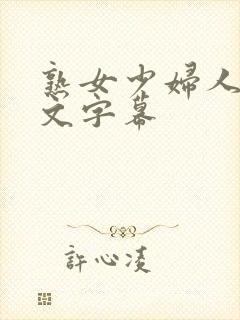 熟女少婦人
文字幕
許心凌